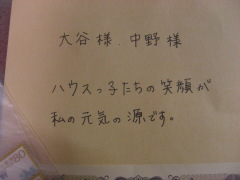 大谷様、中野様
ハウスっ子たちの笑顔が
私の元気の源です。
80